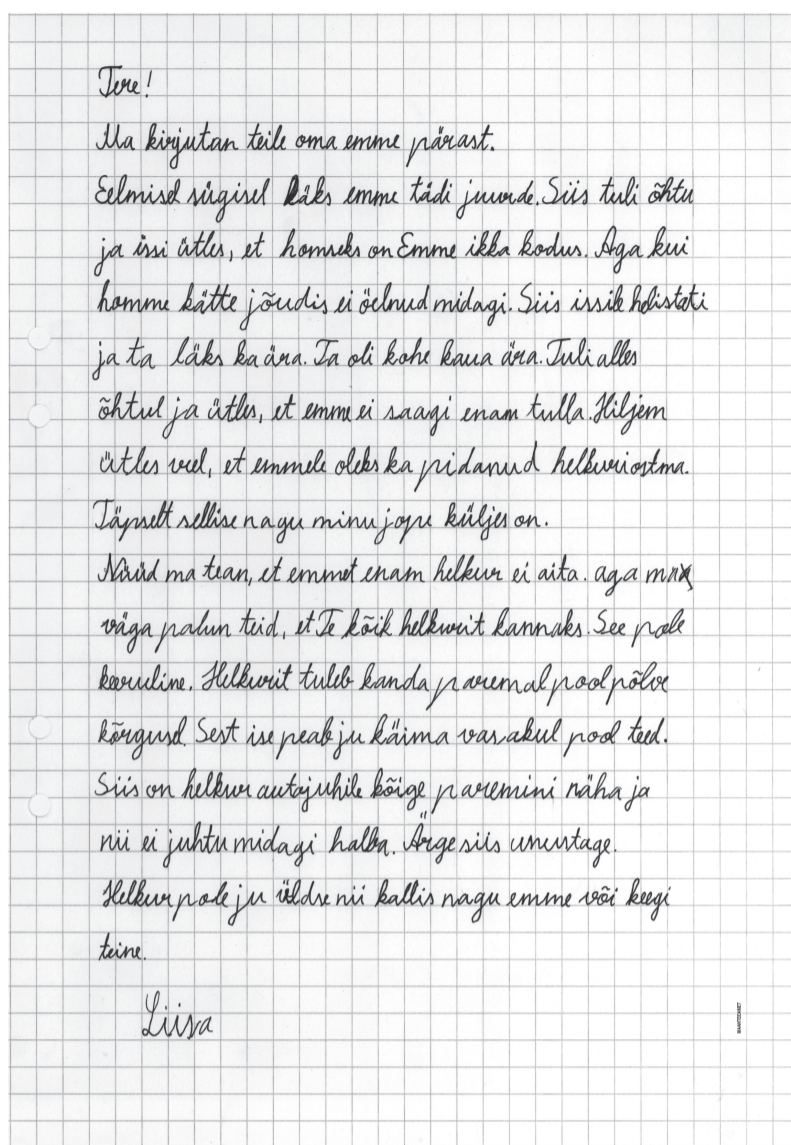 Tere!
Ma kirjutan teile oma emme pärast.
Eelmisel sügisel läks emme tädi juurde. Siis tuli õhtu
ja issi ütles, et homseks on Emme ikka kodus. Aga kui
homme kätte jõudis ei öelnud midagi. Siis issile helistati
ja ta läks ka ära. Ta oli kohe kaua ära. Tuli alles
õhtul ja ütles, et emme ei saagi enam tulla. Hiljem
ütles veel, et emmele oleks ka pidanud helkuri ostma.
Täpselt sellise nagu minu jope küljes on.
Nüüd ma tean, et emmet enam helkur ei aita. aga ma
väga palun teid, et Te kõik helkurit kannaks. See pole
keeruline. Helkurit tuleb kanda paremal pool põlve
kõrgusel. Sest ise peab ju käima vasakul pool teed.
Siis on helkur autojuhile kõige paremini näha ja
nii ei juhtu midagi halba. Ärge siis unustage.
Helkur pole ju üldse nii kallis nagu emme või keegi
teine.
Liisa